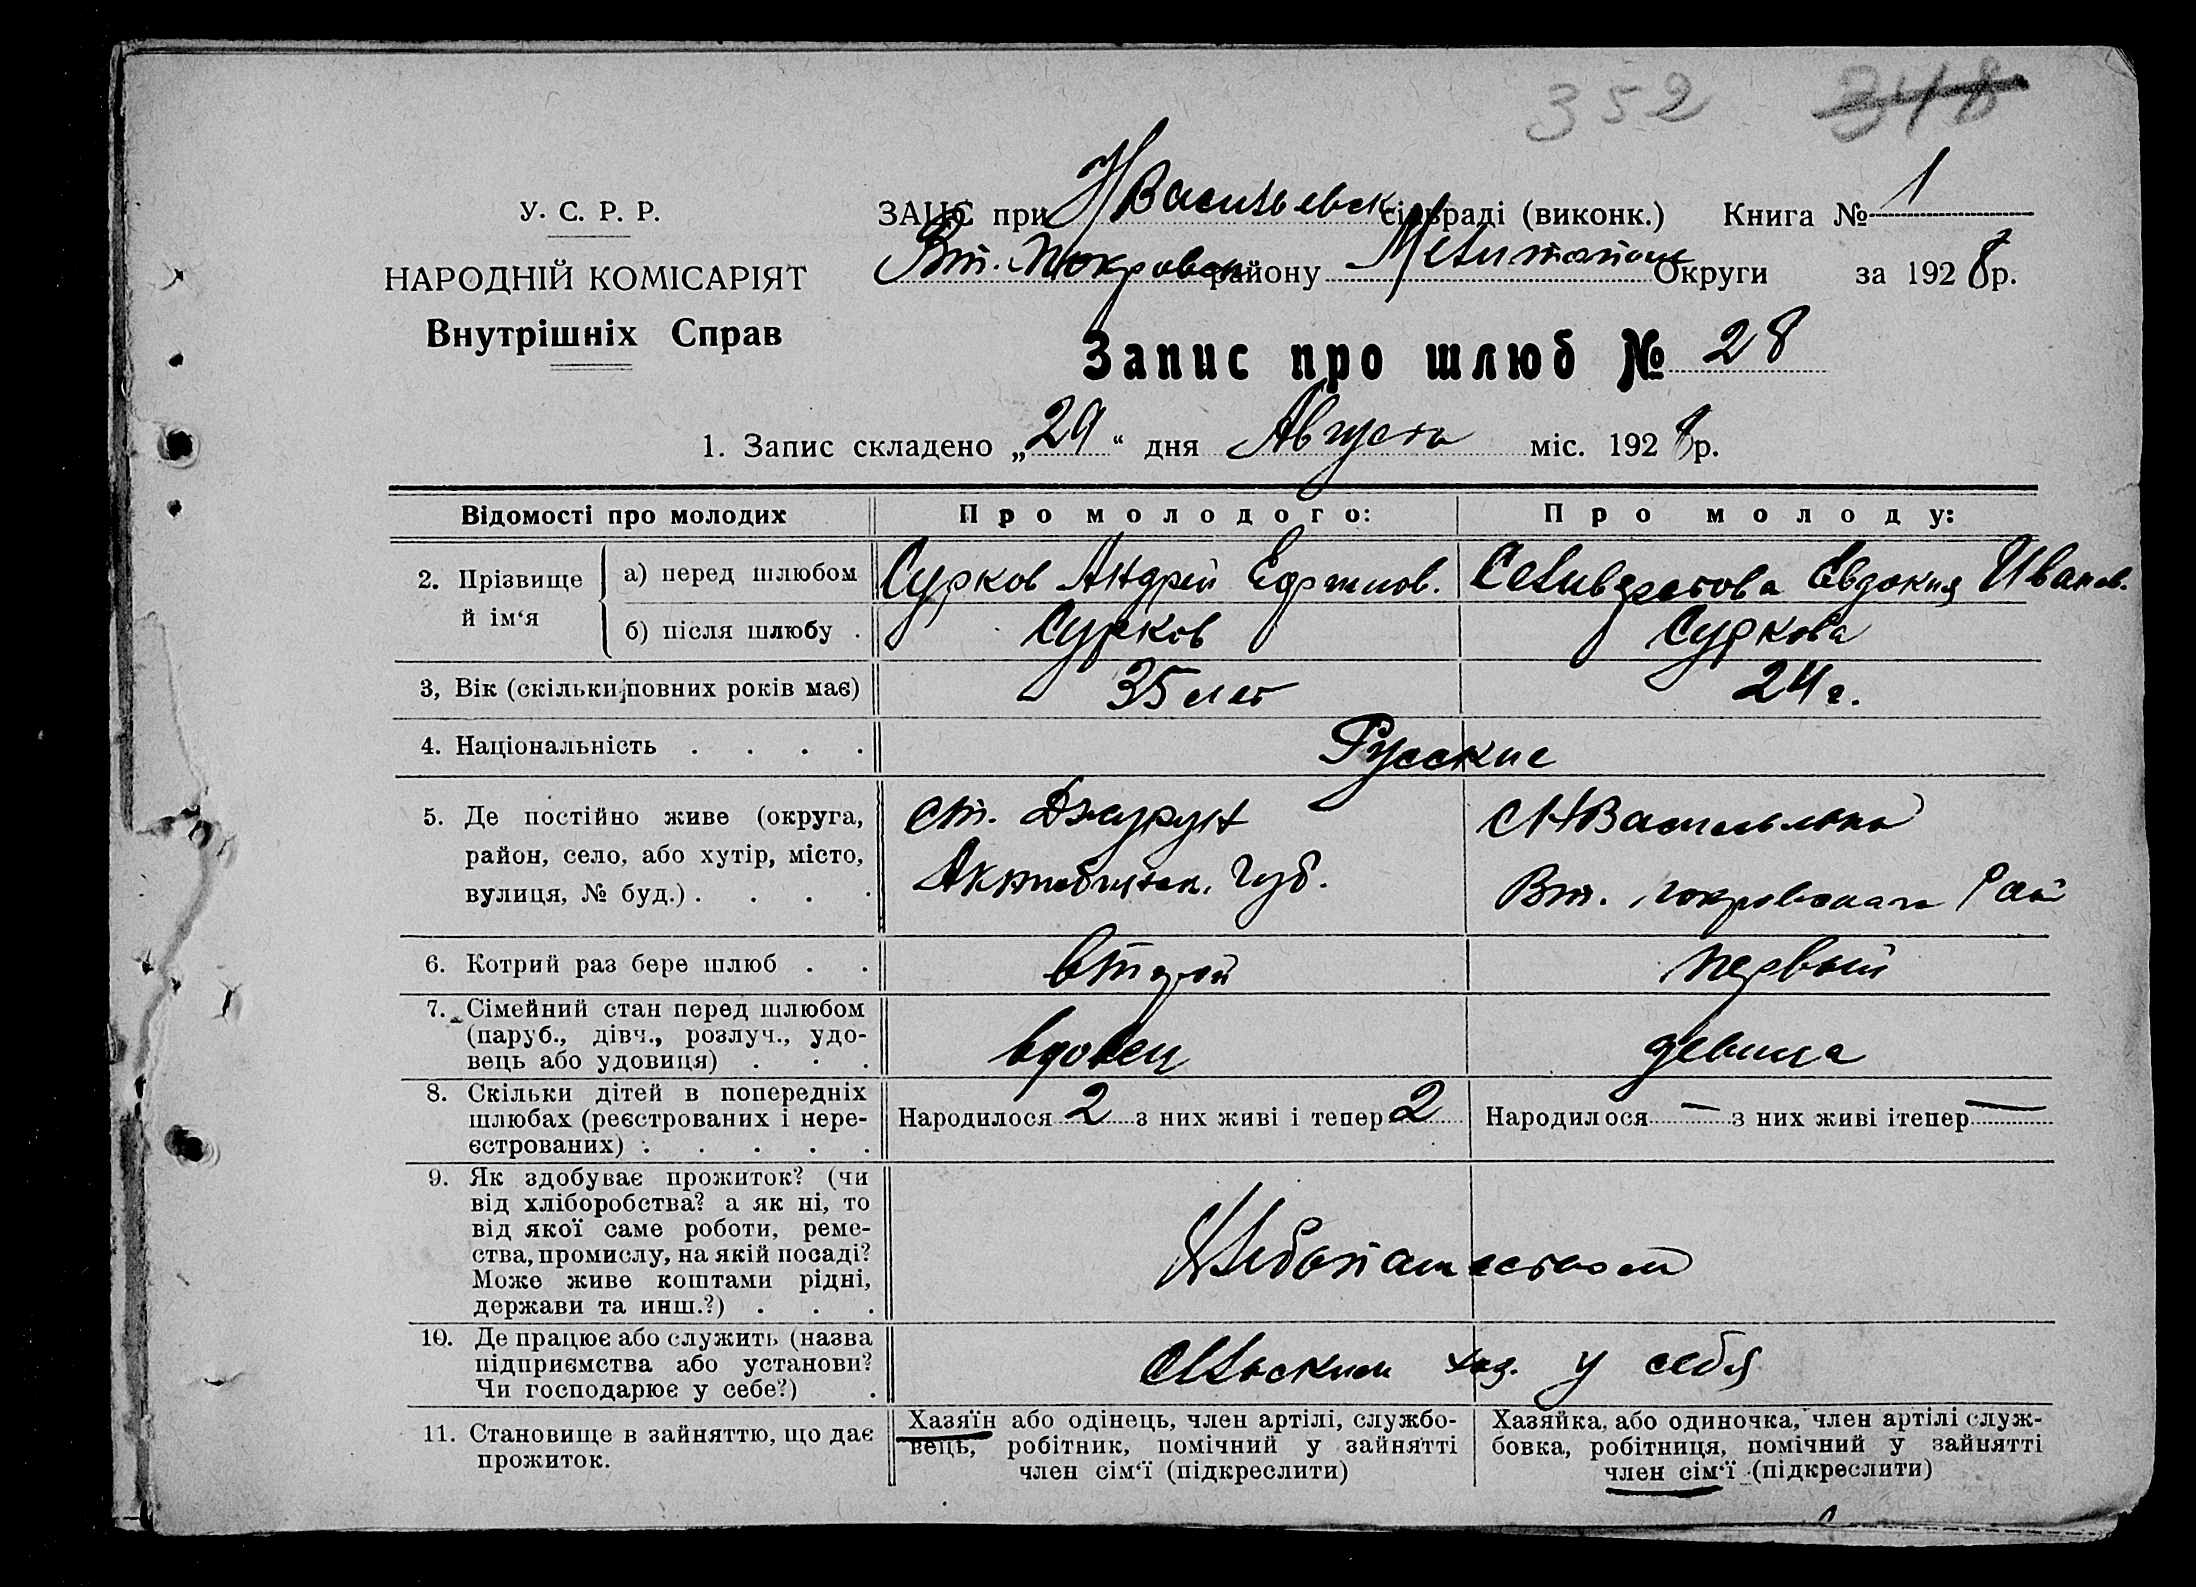 352 348
У. С. Р. Р.
НАРОДНІЙ КОМІСАРІЯТ
Внутрішніх Справ
ЗАЦС при НВасильевск сільраді (виконк.) Книга № 1
Вт. Покровск району Мелитопольс Округи за 1928 р.
Запис про шлюб № 28
1. Запис складено „29“ дня Августа міс. 1928 р.
Відомості про молодих
Про молодого:
Про молоду:
2. Прізвище й ім‘я
а) перед шлюбом
Сурков Андрей Ефимов.
Селиверстова Евдокия Иванов.
б) після шлюбу .
Сурков
Суркова
3, Вік (скільки повних років має)
35 лет
24 г.
4. Національність . . . .
Русские
5. Де постійно живе (округа,
район, село, або хутір, місто,
вулиця, № буд.) . . . .
ст. Джурун
Актюбинск. Губ.
С НВасильевка
Вт. Покровского Рай
6. Котрий раз бере шлюб . .
второй
первый
7. Сімейний стан перед шлюбом
(паруб., дівч., розлуч., удо-
вець або удовиця) . . .
вдовец
девица
8. Скільки дітей в попередніх
шлюбах (реєстрованих і нере-
єстрованих) . . . . .
Народилося 2 з них живі і тепер 2
Народилося — з них живі ітепер —
9. Як здобуває прожиток? (чи
від хліборобства? а як ні, то
від якої саме роботи, реме-
ства, промислу, на якій посаді?
Може живе коштами рідні,
держави та инш.?) . . .
Хлебопашеством
10. Де працює або служить (назва
підприємства або установи?
Чи господарює у себе?) .
Сельским хоз. у себя
11. Становище в зайняттю, що дає
прожиток.
Хазяїн або одінець, член артілі, службо-
вець, робітник, помічний у зайнятті
член сім‘ї (підкреслити)
Хазяйка, або одиночка, член артілі служ-
бовка, робітниця, помічний у зайнятті
член сім‘ї (підкреслити)